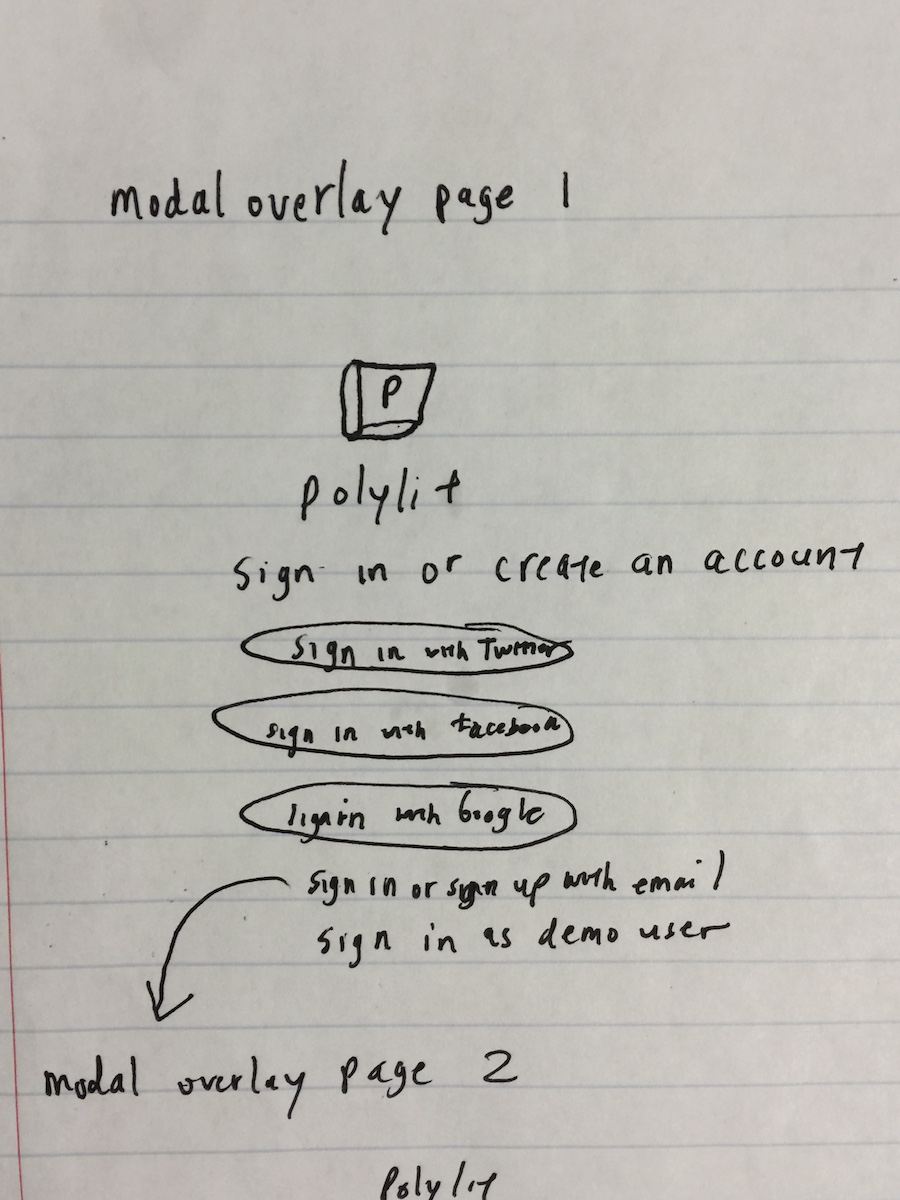 modal overlay page 1
P
polylit
Sign in or create an account
Sign in with Twitter
sign in with facebook
sign in with Google
sign in or sign up with email
sign in as demo user
modal overlay page 2
Polylit